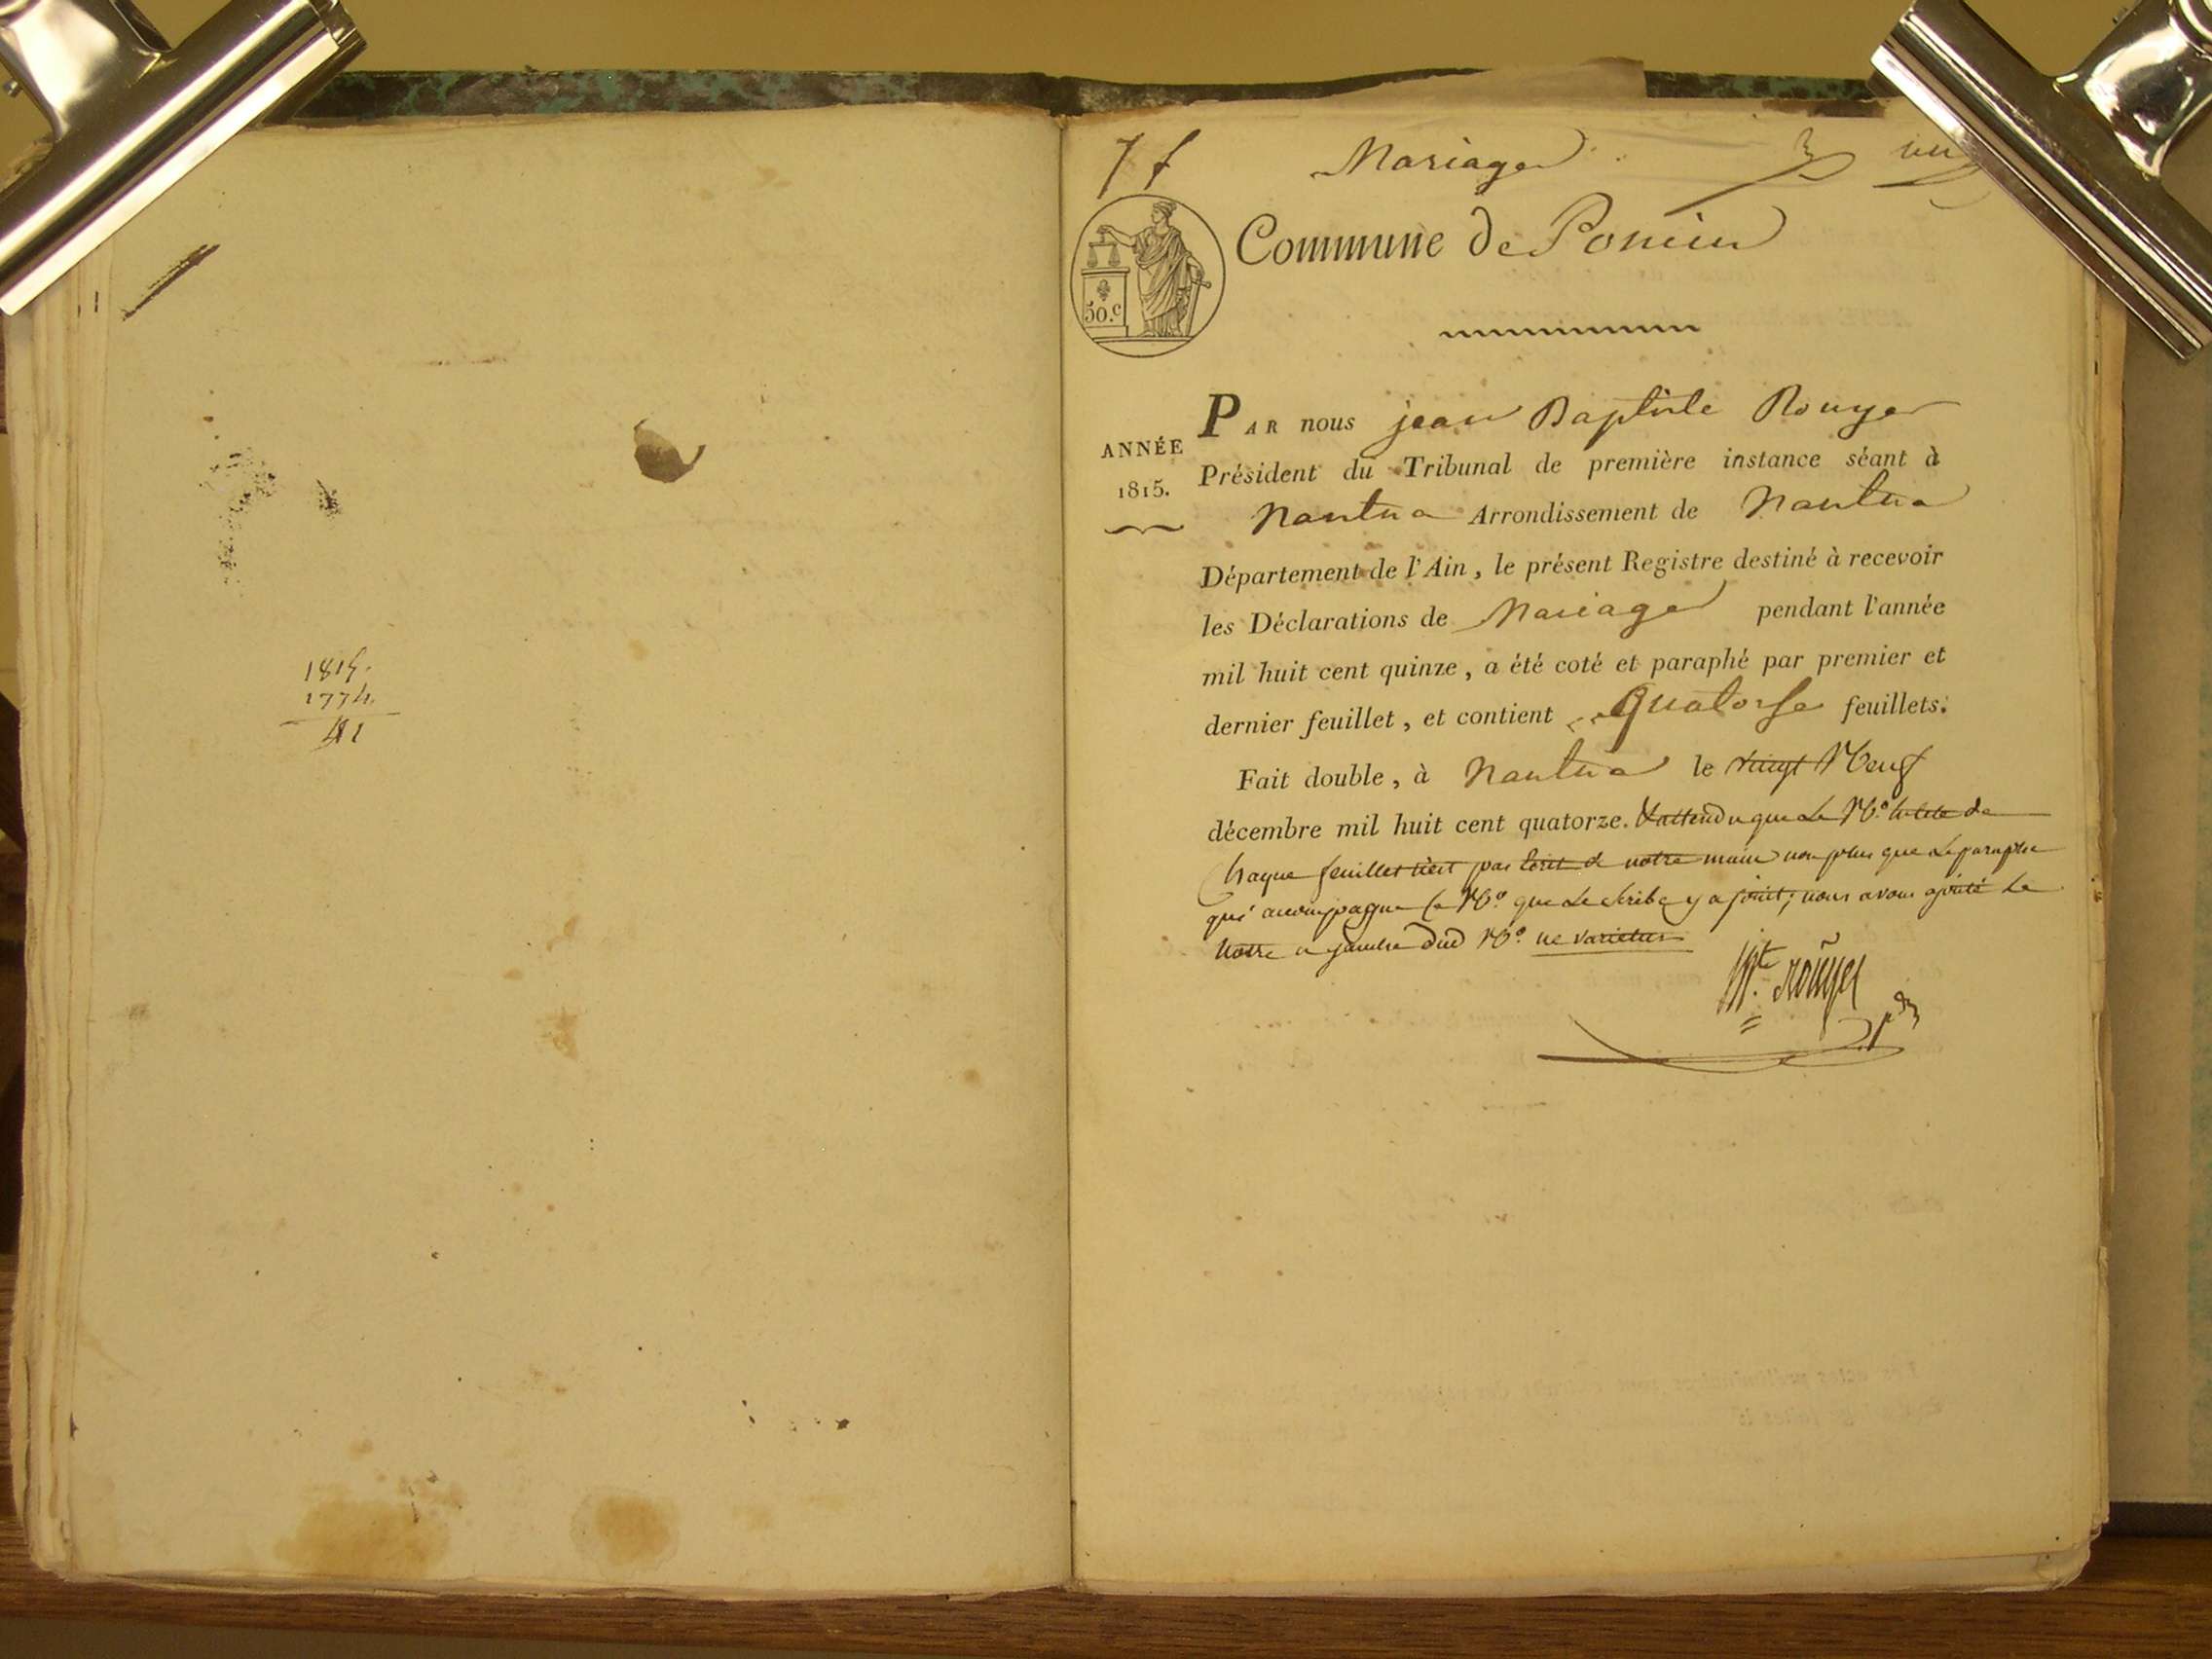 1815.
1774.
41
7 f
Mariage
un
Commune de Poncin
50.c
ANNÉE
1815.
PAR nous jean Baptiste Rouyer
Président du Tribunal de première instance séant à
Nantua Arrondissement de Nantua
Département de l'Ain, le présent Registre destiné à recevoir
les Déclarations de Mariage pendant l'année
mil huit cent quinze, a été coté et paraphé par premier et
dernier feuillet, et contient quatorse feuillets.
Fait double, à Nantua le vingt Neuf
décembre mil huit cent quatorze. Et attendu que Le No. de
Chaque feuillet n'est pas Ecrit de notre main non plus que Le paraphe
qui accompagne Ce No. que Le Scribe y a joint; nous avons ajouté Le
Notre a gauche dud No. ne varietur
Rouyer